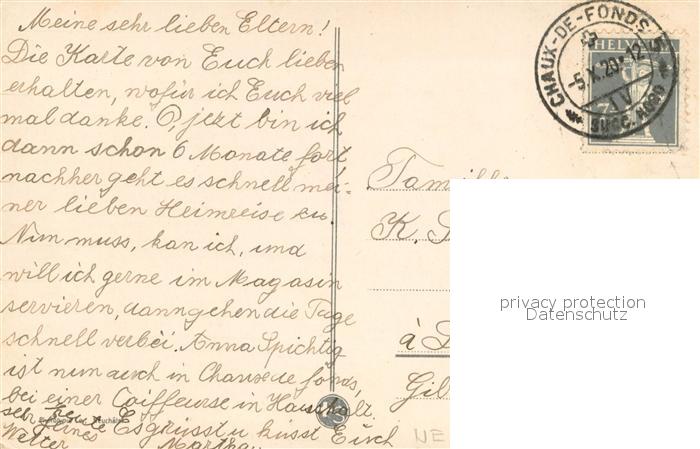 Meine sehr lieben Eltern!
Die Karte von Euch lieben
erhalten, wofür ich Euch viel
mal danke. O, jezt bin ich
dann schon 6 Monate fort
nachher geht es schnell mei-
ner lieben Heimreise zu.
Nun muss, kan ich, und
will ich gerne im Magasin
servieren, dann gehen die Tage
schnell verbëi. Anna Spichtig
ist nun auch in Chaux de fonds,
bei einer Coiffeurse in Haushalt.
Es grüsst u küsst Euch
Martha
sehr feines
Wetter
CHAUX-DE-FONDS 5
-5.X.29 12
IV
SUCC. NORD
HELVETIA
7½
Famille
K.
à
NE
privacy protection
Datenschutz